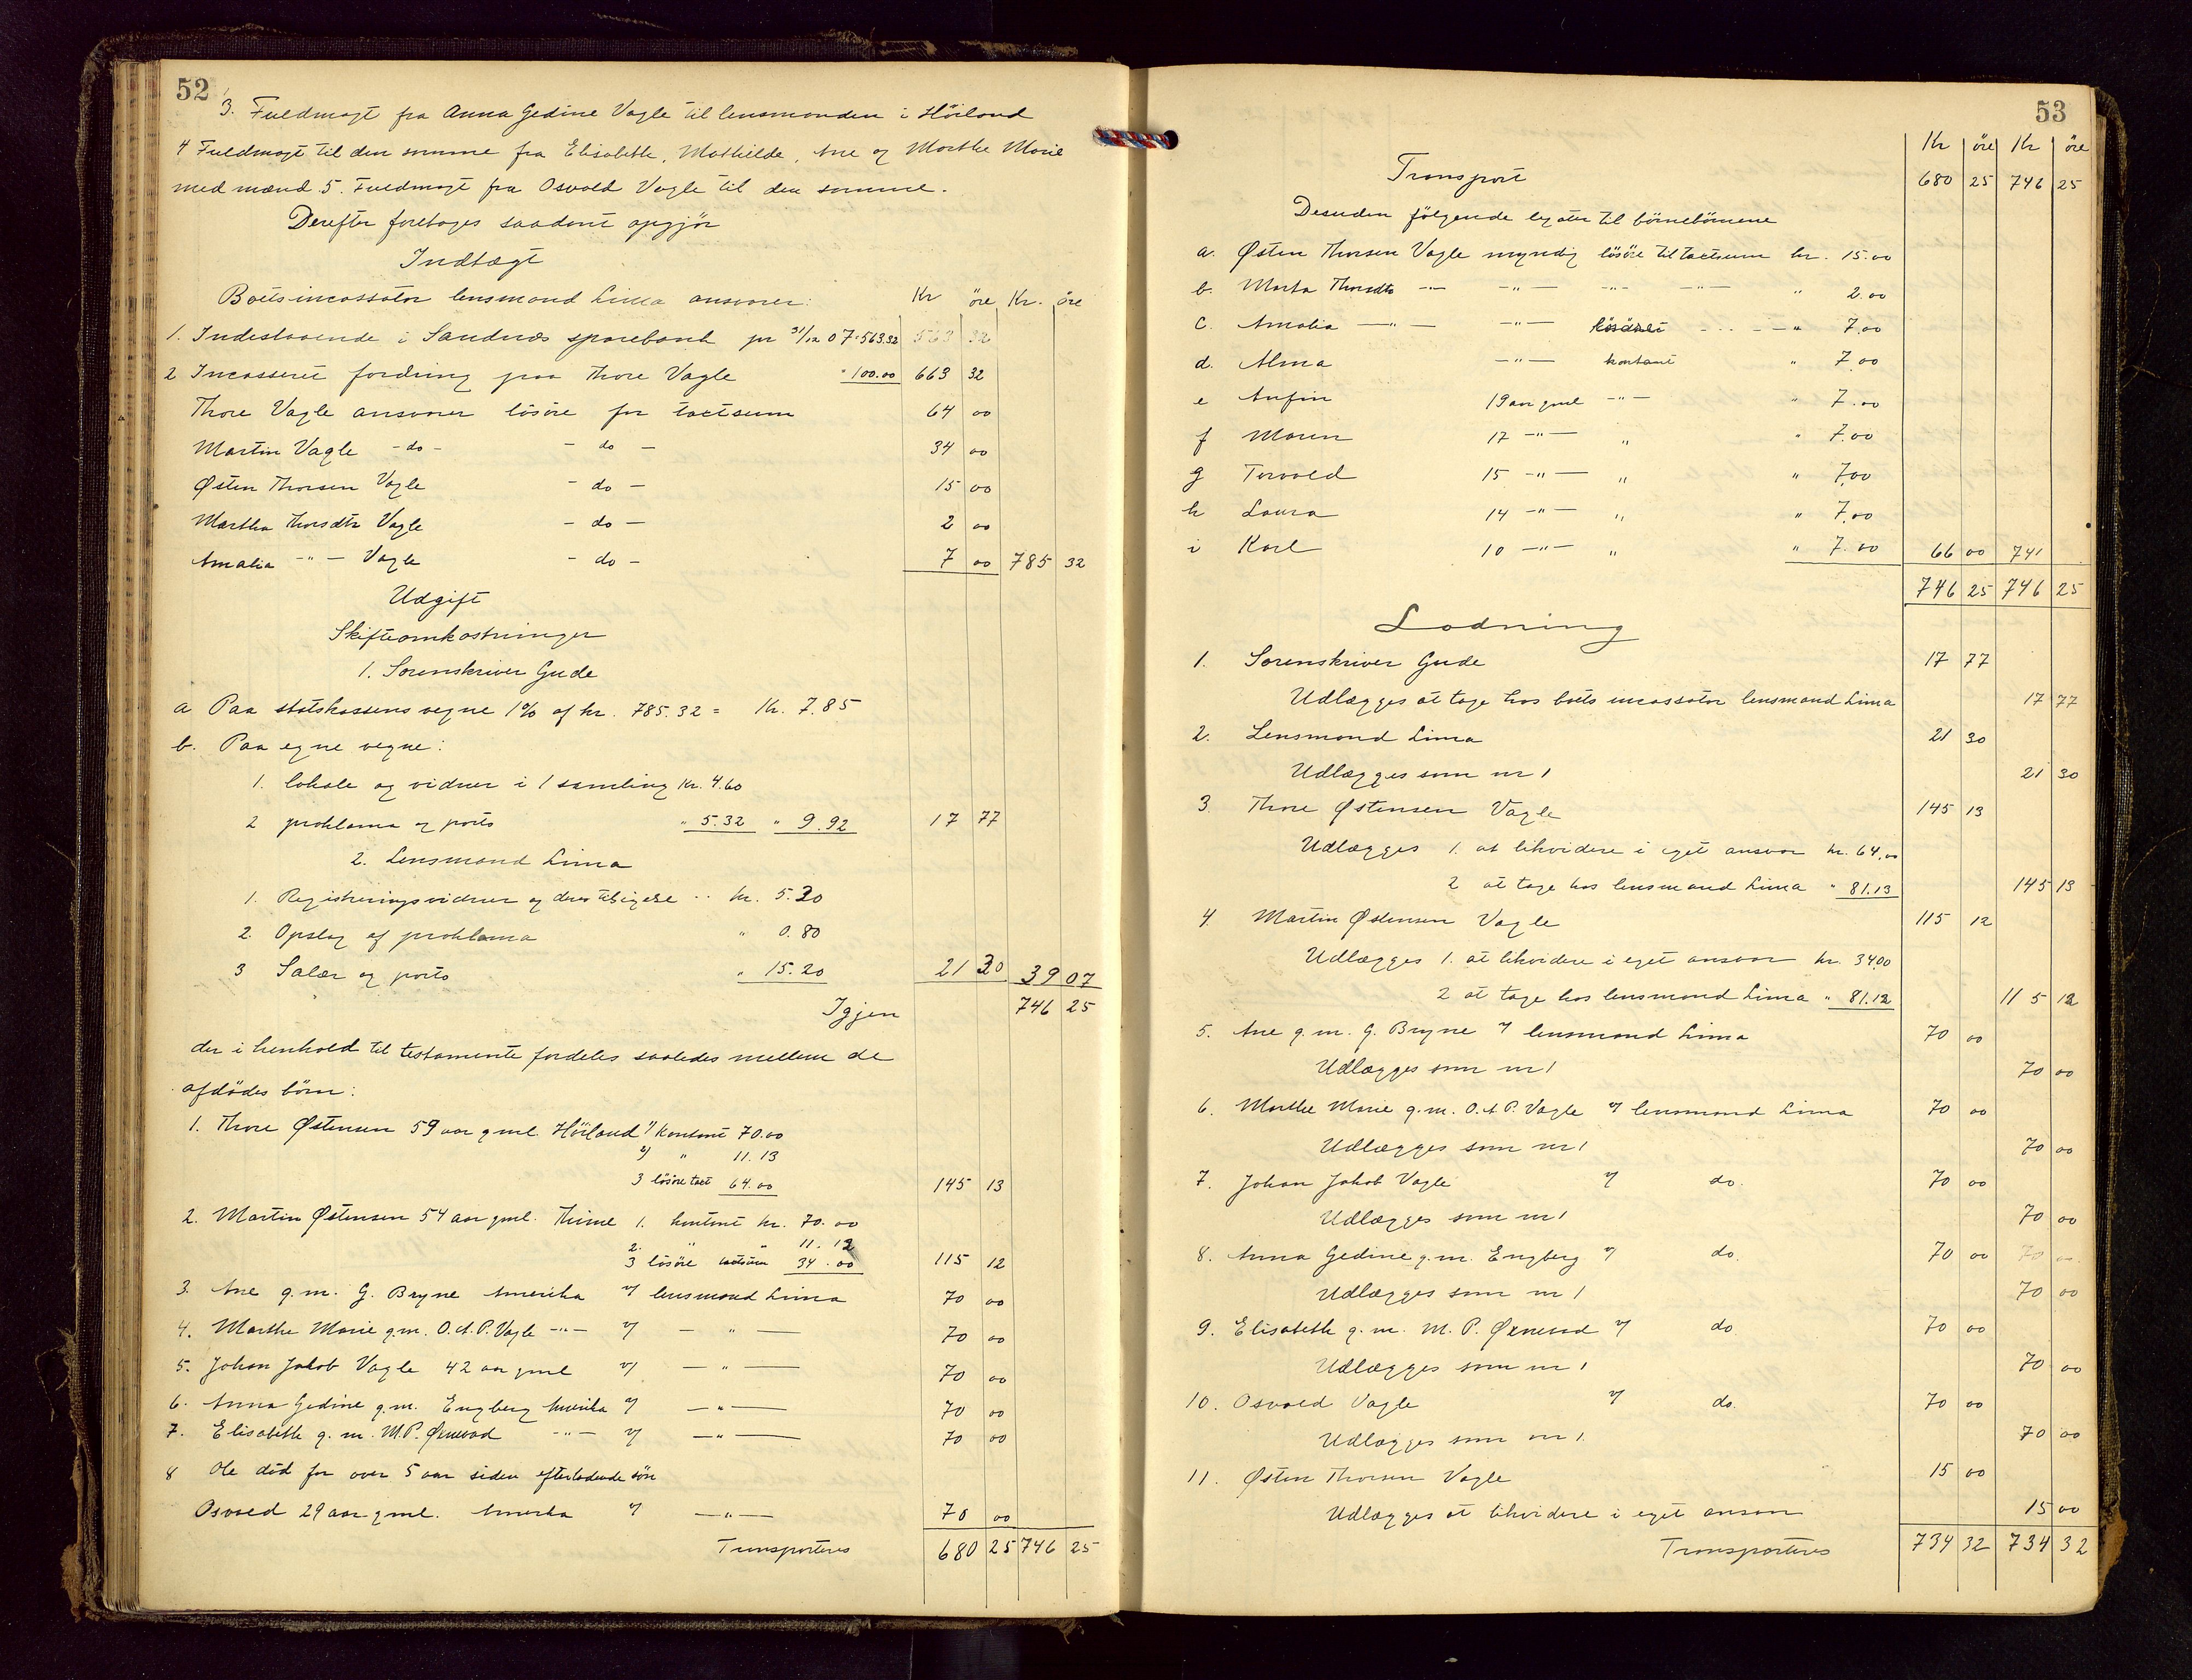 52
3. Fuldmagt fra Anna Gedine Vagle til lensmanden i Höiland
4 Fuldmagt til den samme fra Elisabeth, Mathilde, Ane og Marthe Marie
med mænd 5. Fuldmagt fra Osvald Vagle til den samme.
Derefter foretages saadant opgjør
Indtægt
Boets incassator lensmand Lima ansvarer: Kr öre Kr. öre
1. Indestaaende i Sandnæs sparebank pr 31/12 07 " 563.32 563 32
2 Incasseret fordring paa Thore Vagle " 100.00 663 32
Thore Vagle ansvarer lösöre for taxtsum 64 00
Martin Vagle - do - - do - 34 00
Østen Thorsen Vagle - do - 15 00
Martha Thorsdtr Vagle - do - 2 00
Amalia - " - Vagle - do - 7 00 785 32
Udgift
Skifteomkostninger
1. Sorenskriver Gude
a Paa statskassens vegne 1% af kr. 785.32 = Kr. 7.85
b. Paa egne vegne:
1. lokale og vidner i 1 samling Kr. 4.60
2 proklama og porto " 5.32 " 9.92 17 77
2. Lensmand Lima
1. Registreringsvidner og deres tilsigelse .. kr. 5.30
2. Opslag af proklama " 0.80
3 Salær og porto " 15.20 21 30 39 07
Igjen 746 25
der i henhold til testamente fordeles saaledes mellem de
afdödes börn:
1. Thore Østensen 59 aar gml. Höiland 1/ kontant 70.00
2/ " 11.13
3 lösöre taxt 64.00 145 13
2. Martin Østensen 54 aar gml. Thime 1. kontant kr. 70.00
2. " " 11.12
3 lösöre taxtsum 34.00 115 12
3. Ane g.m. G. Bryne Amerika v/ lensmand Lima 70 00
4. Marthe Marie g.m. O.A.P. Vagle - " - v/ - " - 70 00
5. Johan Jakob Vagle 42 aar gml v/ - " - 70 00
6. Anna Gedine g.m. Engberg Amerika v/ - " - 70 00
7. Elisabeth g.m. M.P. - " - v/ - " - 70 00
8 Ole död for over 5 aar siden efterladende sön
Osvald 29 aar gml. Amerika v/ - " - 70 00
Transporteres 680 25 746 25
53
Kr öre Kr öre
Transport 680 25 746 25
Desuden fölgende legater til börnebörnene
a. Østen Thorsen Vagle myndig lösöre til taxtsum kr. 15.00
b. Marta Thorsdtr - " - - " - - " - " 2.00
c. Amalia - " - - " - lösöre - " 7.00
d. Alma - " - kontant " 7.00
e Anfin 19 aar gml - " - " 7.00
f Maren 17 - " - " " 7.00
g Torvald 15 - " - " " 7.00
h Laura 14 - " - " " 7.00
i Karl 10 - " - " " 7.00 66 00 741
746 25 746 25
Lodning
1. Sorenskriver Gude 17 77
Udlægges at tage hos boets incassator lensmand Lima 17 77
2. Lensmand Lima 21 30
Udlægges som nr 1 21 30
3. Thore Østensen Vagle 145 13
Udlægges 1. at likvidere i eget ansvar kr. 64.00
2 at tage hos lensmand Lima " 81.13 145 13
4. Martin Østensen Vagle 115 12
Udlægges 1. at likvidere i eget ansvar kr. 34.00
2 at tage hos lensmand Lima " 81.12 115 12
5. Ane g.m. G. Bryne v/ lensmand Lima 70 00
Udlægges som nr 1 70 00
6. Marthe Marie g.m. O.A.P. Vagle v/ lensmand Lima 70 00
Udlægges som nr 1 70 00
7. Johan Jakob Vagle v/ do. 70 00
Udlægges som nr 1 70 00
8. Anna Gedine g.m. Engberg v/ do. 70 00 70 00
Udlægges som nr 1 70 00
9. Elisabeth g.m. M.P. v/ do 70 00
Udlægges som nr 1 70 00
10. Osvald Vagle v/ do. 70 00
Udlægges som nr 1. 70 00
11. Østen Thorsen Vagle 15 00
Udlægges at likvidere i eget ansvar 15 00
Transporteres 734 32 734 32